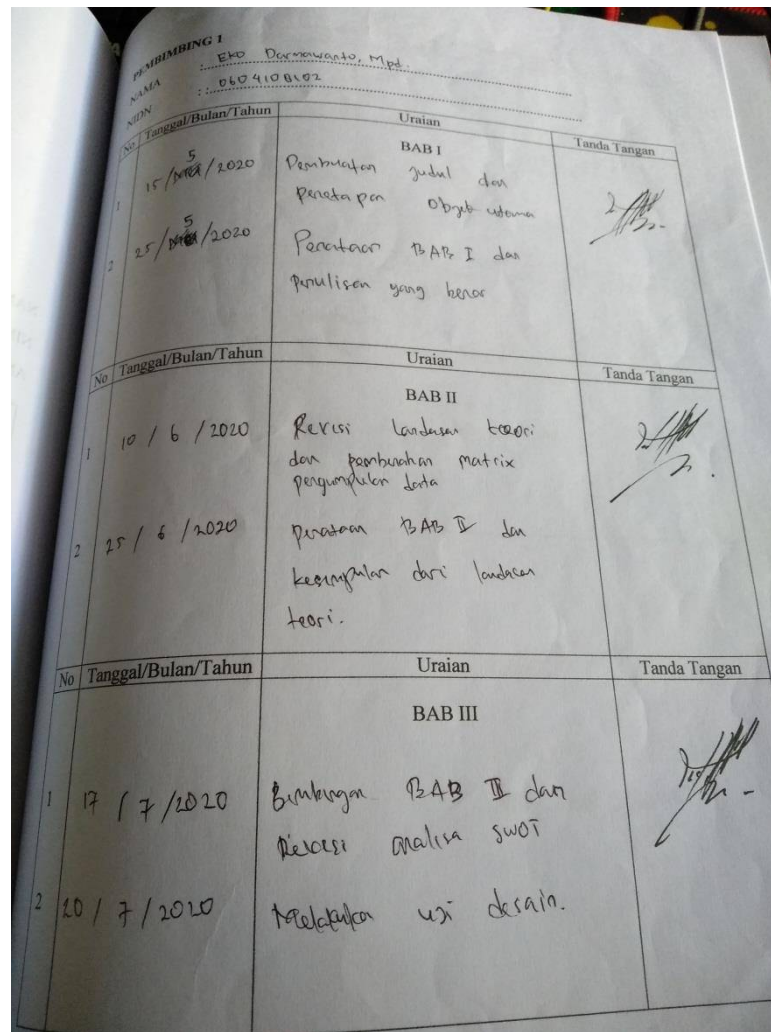 PEMBIMBING 1
NAMA : Eko Darmawanto, Mpd.
NIDN : 0604108102
No Tanggal/Bulan/Tahun Uraian Tanda Tangan
BAB I
1 15 / 5 / 2020 Pembuatan judul dan
penetapan objek utama
2 25 / 5 / 2020 Penataan BAB I dan
penulisan yang benar
No Tanggal/Bulan/Tahun Uraian Tanda Tangan
BAB II
1 10 / 6 / 2020 Revisi landasan teori
dan pembuatan matrix
pengumpulan data
2 25 / 6 / 2020 penataan BAB II dan
kesimpulan dari landasan
teori.
No Tanggal/Bulan/Tahun Uraian Tanda Tangan
BAB III
1 17 / 7 / 2020 Bimbingan BAB III dan
Revisi analisa SWOT
2 20 / 7 / 2020 Melakukan uji desain.